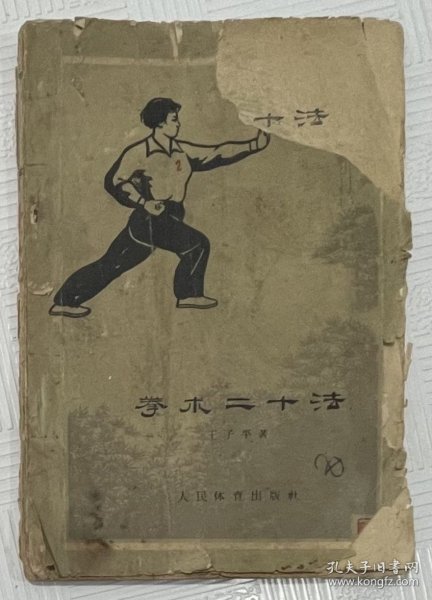 十法
拳术二十法
王子平著
人民体育出版社
孔夫子旧书网
www.kongfz.com